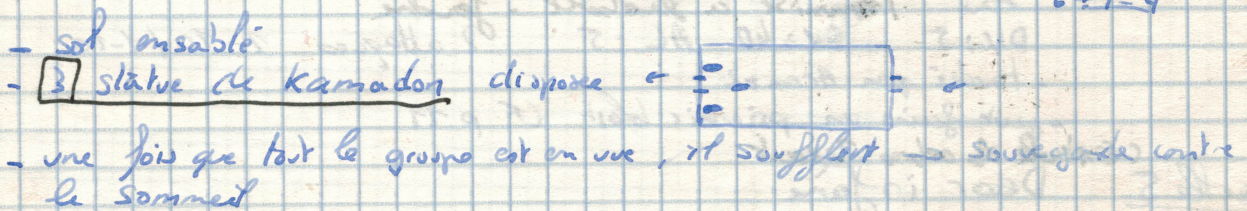 - sol ensablé
- 3 statue de Kamadon disposée ←
- une fois que tout le groupe est en vue, il soufflent → sauvegarde contre
le sommeil